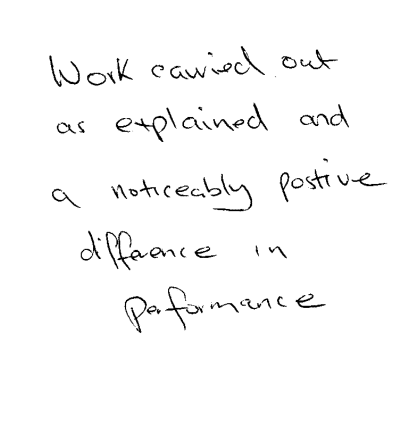 Work carried out
as explained and
a noticeably postive
difference in
performance